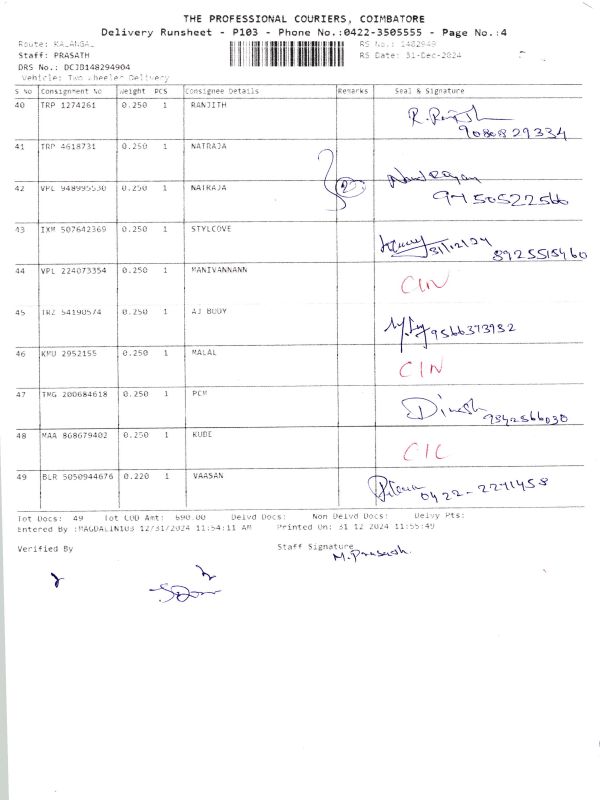 THE PROFESSIONAL COURIERS, COIMBATORE
Delivery Runsheet - P103 - Phone No.:0422-3505555 - Page No.:4
Route: KALANGAL RS No.: 1482949
Staff: PRASATH RS Date: 31-Dec-2024
DRS No.: DCJB148294904
Vehicle: Two Wheeler Delivery
S No Consignment No Weight PCS Consignee Details Remarks Seal & Signature
40 TRP 1274261 0.250 1 RANJITH
9080829334
41 TRP 4618731 0.250 1 NATRAJA
42 VPL 948995530 0.250 1 NATRAJA 2
9450522566
43 IXM 507642369 0.250 1 STYLCOVE
31/12/24 8925515460
44 VPL 224073354 0.250 1 MANIVANNANN
CIN
45 TRZ 54190574 0.250 1 AJ BODY
9566373952
46 KMU 2952155 0.250 1 MALAL
CIN
47 TMG 200684618 0.250 1 PCM
Dinesh 9342566030
48 MAA 868679402 0.250 1 KUDE
CIC
49 BLR 5050944676 0.220 1 VAASAN
0422-2271458
Tot Docs: 49 Tot COD Amt: 690.00 Delvd Docs: Non Delvd Docs: Delvy Pts:
Entered By :MAGDALIN103 12/31/2024 11:54:11 AM Printed On: 31 12 2024 11:55:49
Verified By Staff Signature
M.Prasash.